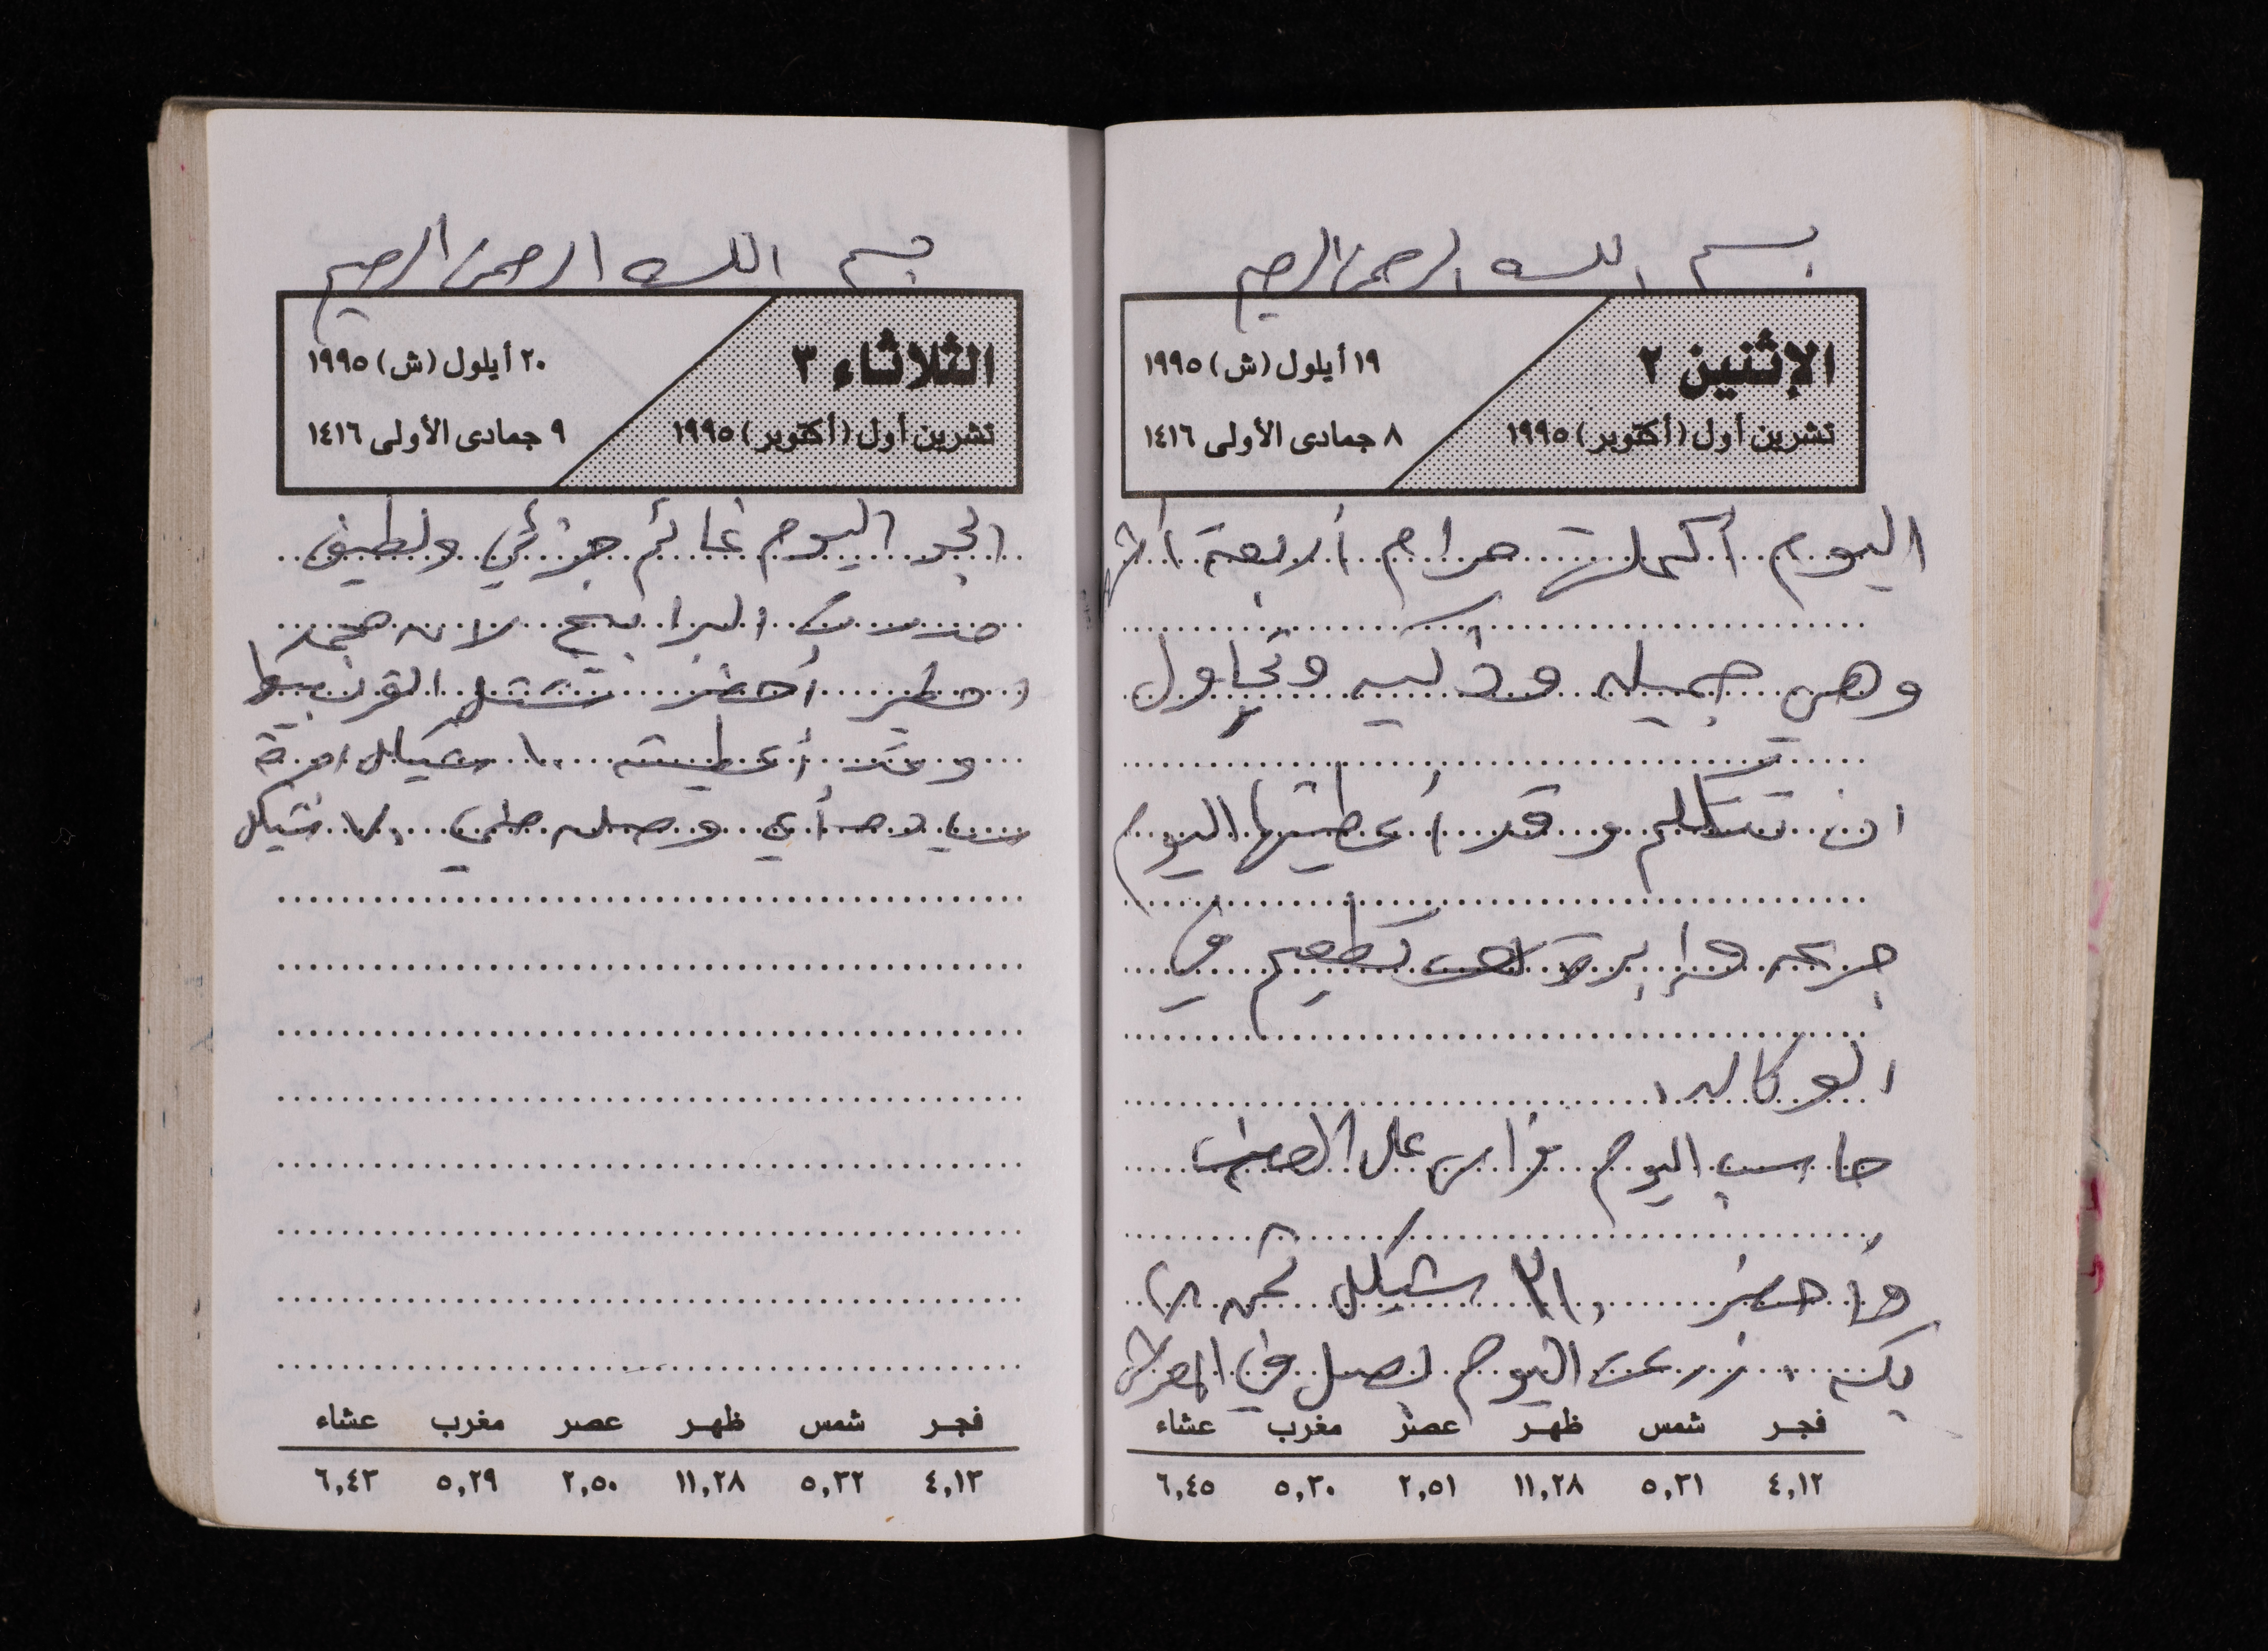 بسم الله الرحمن الرحيم
الإثنين ٢
تشرين أول (أكتوبر) ١٩٩٥
١٩ أيلول (ش) ١٩٩٥
٨ جمادى الأولى ١٤١٦
اليوم أكملت مرام أربعة أشهر
وهي جميله وذكيه وتحاول
ان تتكلم وقد أعطيتها اليوم
جرعه و إبرة تطعيم في
الوكاله.
حاسب اليوم فراس على
وأحضر ٣١٠ شيكل ثمن
زرعت اليوم بصل في
فجر شمس ظهر عصر مغرب عشاء
٤,١٢ ٥,٣١ ١١,٢٨ ٢,٥١ ٥,٣٠ ٦,٤٥
بسم الله الرحمن الرحيم
الثلاثاء ٣
تشرين أول (أكتوبر) ١٩٩٥
٢٠ أيلول (ش) ١٩٩٥
٩ جمادى الأولى ١٤١٦
الجو اليوم غائم جزئي ولطيف
البرابيج لان محمد
أحضر شتل القرنبيط
وقد أعطيته ١٠ شيكل
أي وصله ٧٠ شيكل
فجر شمس ظهر عصر مغرب عشاء
٤,١٣ ٥,٣٢ ١١,٢٨ ٢,٥٠ ٥,٢٩ ٦,٤٣